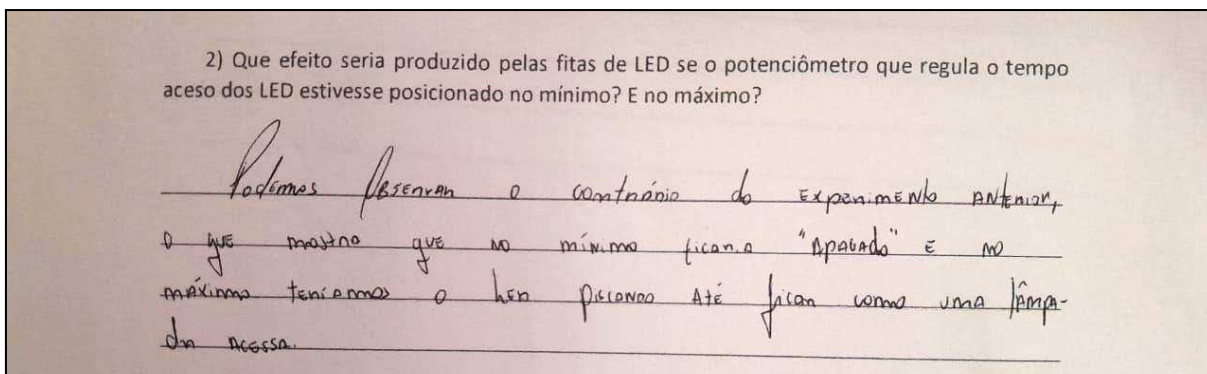 2) Que efeito seria produzido pelas fitas de LED se o potenciômetro que regula o tempo
aceso dos LED estivesse posicionado no mínimo? E no máximo?
Podemos Observar o contrário do Experimento Anterior,
o que mostra que no mínimo ficaria "Apagado" E no
máximo teríamos o Led Piscando Até ficar como uma lâmpa-
da Acessa.